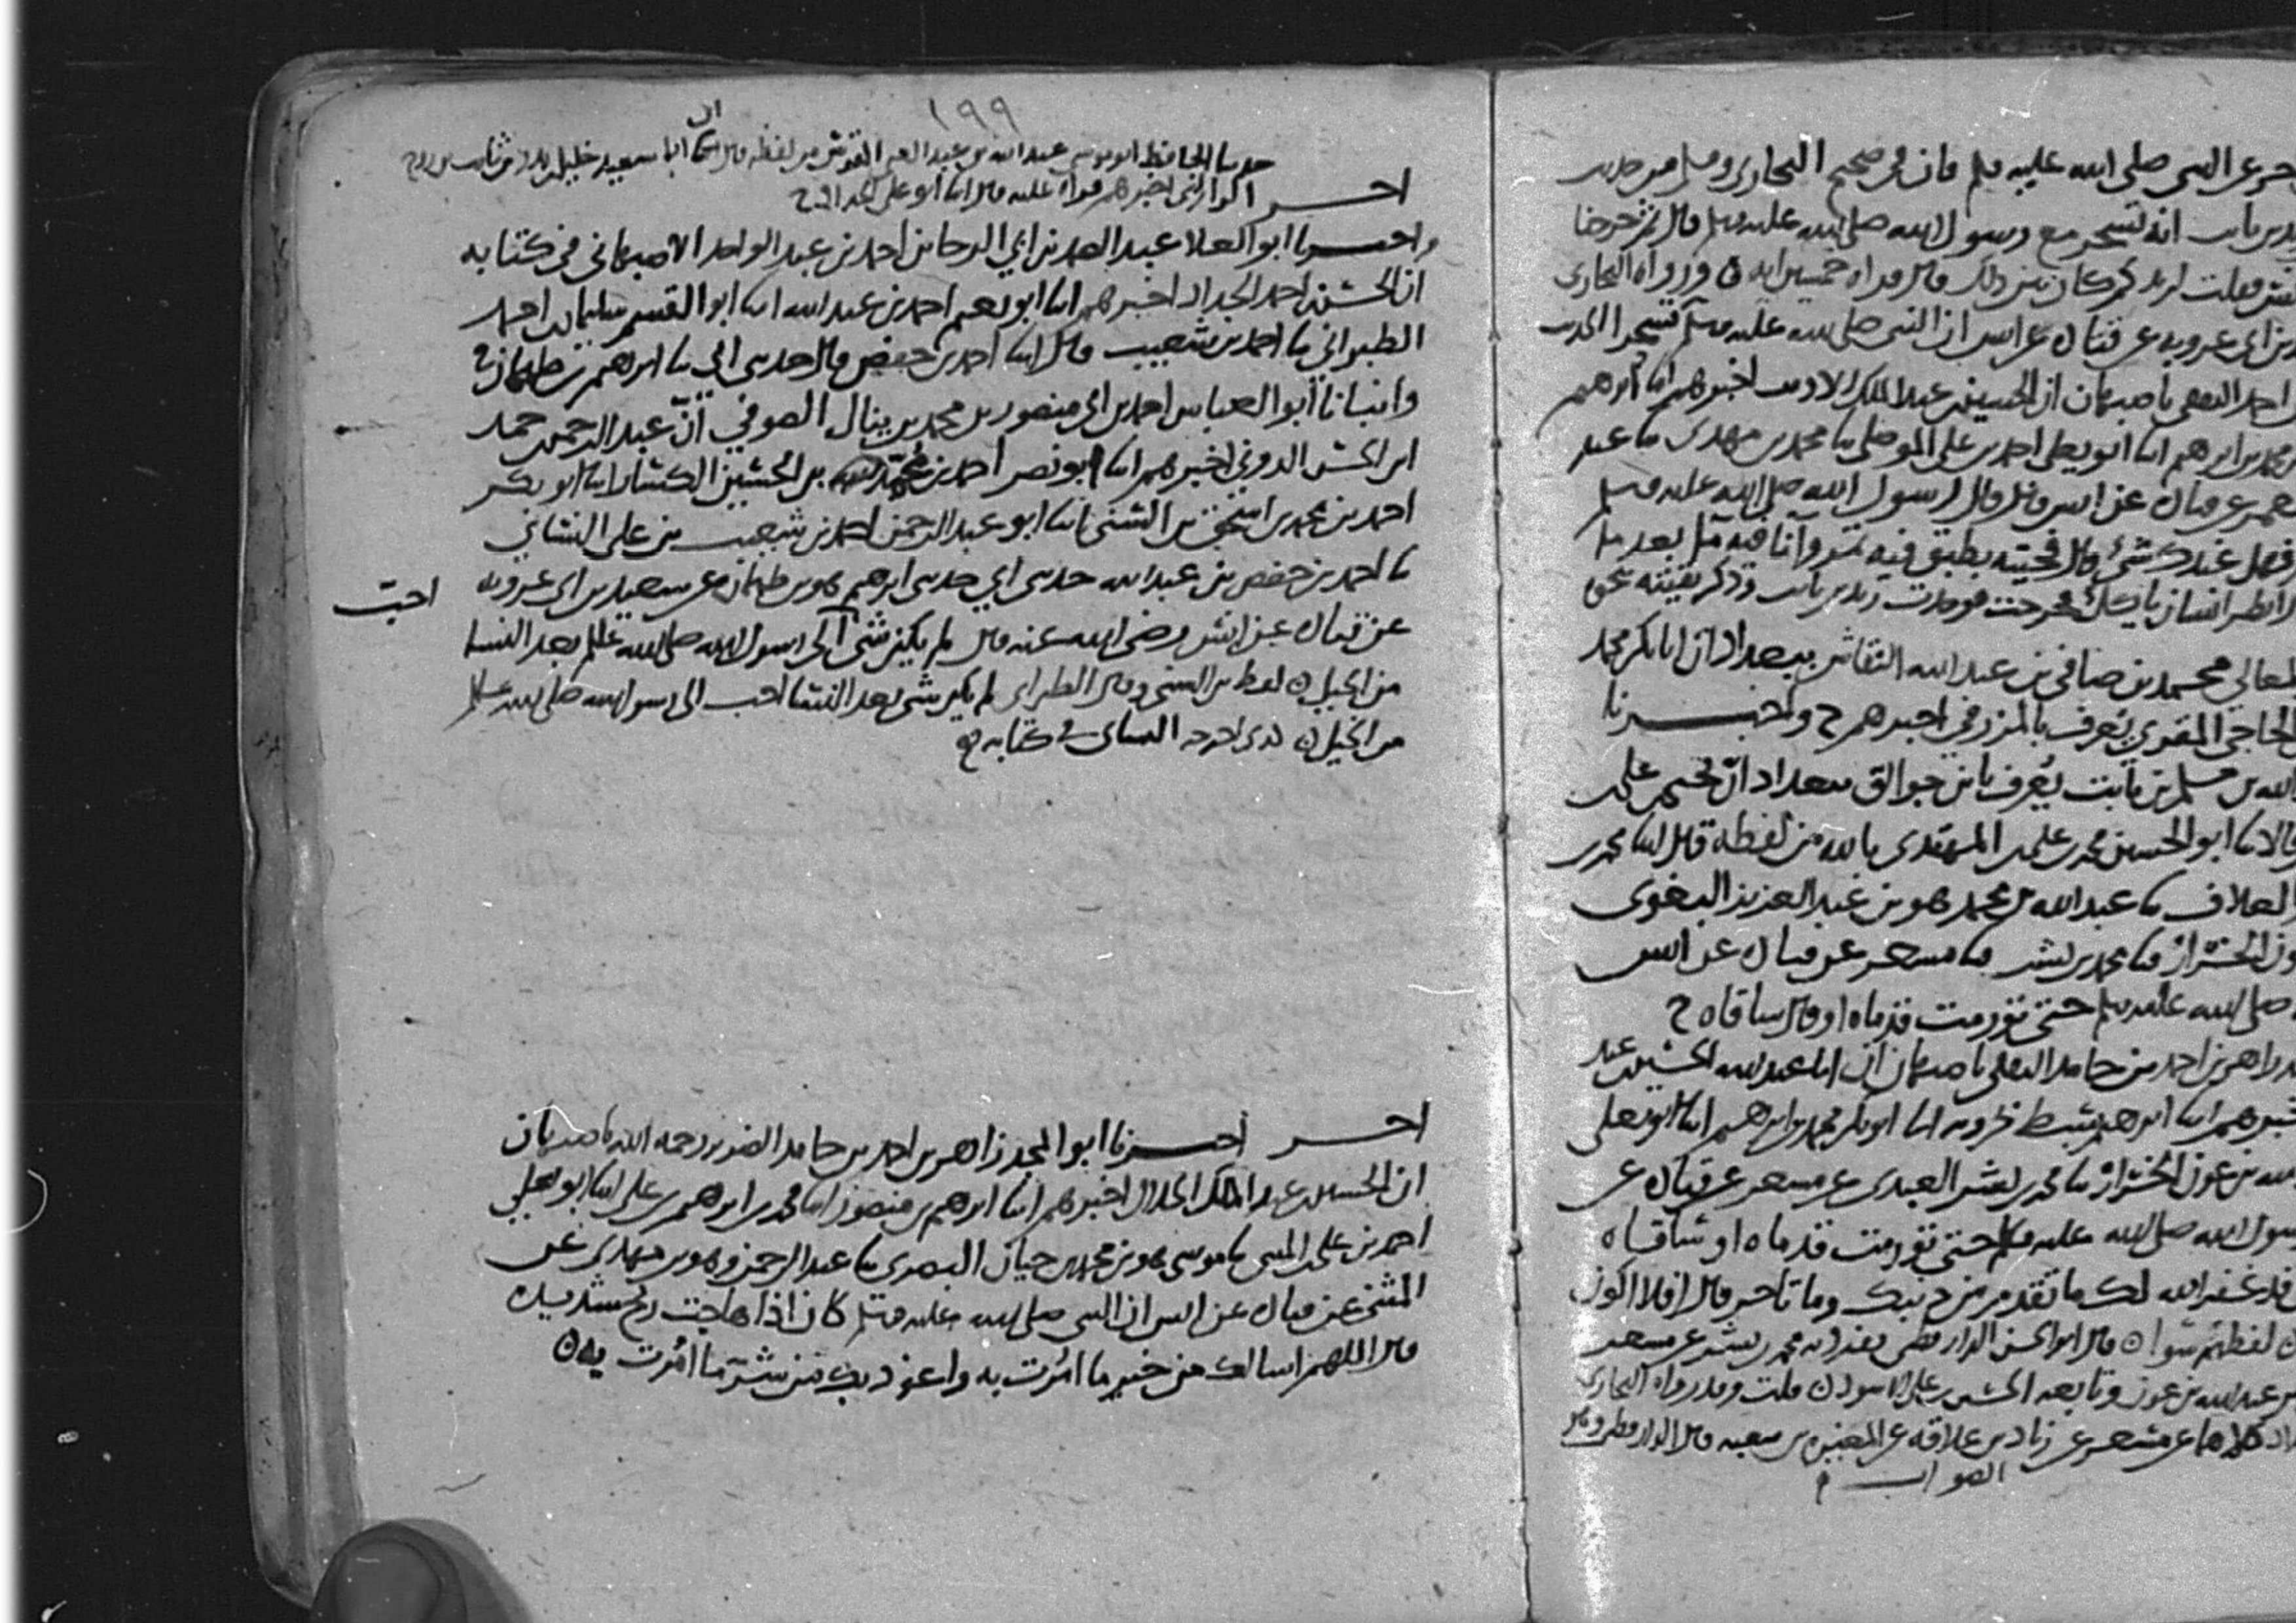 خرعن النبي صلى الله عليه وسلم فان في صحيح البخاري ومسلم من حديث
زيد بن ثابت انه تسحر مع رسول الله صلى الله عليه وسلم قال ثم خرجنا
كم كان بين ذلك قال قراه خمسين ايه ورواه البخاري
بن ابي عروبه عن قتاده عن انس ان النبي صلى الله عليه وسلم تسحر الحديث
احمد الثقفي باصبهان ان الحسين بن عبد الملك الاديب اخبرهم انا ابرهيم
محمد بن ابرهيم انا ابو يعلى احمد بن علي الموصلي نا محمد بن مهدي نا عبد
معمر عن قتاده عن انس قال قال رسول الله صلى الله عليه وسلم
عندك شيء قال فجيته بطبق فيه تمر وانا فيه ما بعد ما
انظر انسانا ياكل فخرجت فوجدت زيد بن ثابت وذكر بقيته نحو
المعالي محمد بن صافي بن عبد الله النقاش ببغداد ان ابا بكر محمد
الحاجي المقري يعرف بالمزرفي اخبرهم ح واخبرنا
الله بن مسلم بن ثابت يعرف بابن جوالق ببغداد ان يحيى بن علي
قالا نا ابو الحسين محمد بن علي بن المهتدي بالله من لفظه قال انا محمد بن
العلاف نا عبد الله بن محمد هو بن عبد العزيز البغوي
عون الخزاز نا محمد بن بشر نا مسعر عن قتاده عن انس
صلى الله عليه وسلم حتى تورمت قدماه او قال ساقاه ح
زاهر بن احمد بن حامد الثقفي باصبهان ان ابا عبد الله الحسين بن عبد
اخبرهم انا ابرهيم سبط بحرويه انا ابو بكر محمد بن ابرهيم انا ابو يعلى
الله بن عون الخزاز نا محمد بن بشر العبدي عن مسعر عن قتاده عن
رسول الله صلى الله عليه وسلم حتى تورمت قدماه او ساقاه
قد غفر الله لك ما تقدم من ذنبك وما تاخر قال افلا اكون
لفظهم سوا ن قال ابو الحسن الدارقطني تفرد به محمد بن بشر عن مسعر
عبد الله بن عون وتابعه الحسين بن علي بن الاسود ن قلت وقد رواه البخاري
كلاهما عن مسعر عن زياد بن علاقه عن المغيره بن شعبه قال الدارقطني وهو
الصواب
١٩٩
حدثنا الحافظ ابو موسى عبد الله بن عبد الغني المقدسي من لفظه قال ابا سعيد خليل بن بدر بن ثابت بن روح
اخبر الراراني اخبرهم قراه عليه قال انا ابو علي الحداد ح
واخبرنا ابو العلا عبد الصمد بن ابي الرجا بن احمد بن عبد الواحد الاصبهاني في كتابه
ان الحسن بن احمد الحداد اخبرهم انا ابو نعيم احمد بن عبد الله انا ابو القسم سليمان بن احمد
الطبراني نا احمد بن شعيب قال انا احمد بن حفص قال حدثني ابي نا ابرهيم بن طهمان ح
وانبانا ابو العباس احمد بن ابي منصور بن محمد بن ينال الصوفي ان عبد الرحمن بن حمد
ابن الحسن الدوني اخبرهم انا ابو نصر احمد بن محمد بن الحسين الكسار انا ابو بكر
احمد بن محمد بن اسحق بن السني انا ابو عبد الرحمن احمد بن شعيب بن علي النسائي
نا احمد بن حفص بن عبد الله حدثني ابي حدثني ابرهيم هو بن طهمان عن سعيد بن ابي عروبه
عن قتاده عن انس رضي الله عنه قال لم يكن شيء الى رسول الله صلى الله عليه وسلم بعد النسا
احب
من الخيل ن لفظ بن السني وقال الطبراني لم يكن شيء بعد النسا احب الى رسول الله صلى الله عليه وسلم
من الخيل ن اخرجه النسائي في كتابه
اخبر اخبرنا ابو المجد زاهر بن احمد بن حامد الضرير رحمه الله باصبهان
ان الحسين بن عبد الملك الخلال اخبرهم انا ابرهيم بن منصور انا محمد بن ابرهيم بن علي انا ابو يعلى
احمد بن علي بن المثنى نا موسى هو بن محمد بن حيان البصري نا عبد الرحمن وهو بن مهدي عن
المثنى عن قتاده عن انس ان النبي صلى الله عليه وسلم كان اذا هاجت ريح شديده
قال اللهم اسالك من خير ما امرت به واعوذ بك من شر ما امرت به ن